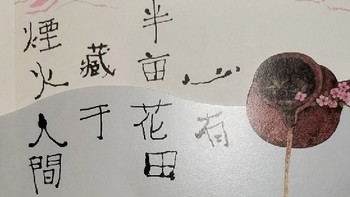 心有
半亩花田
藏于
煙火人間